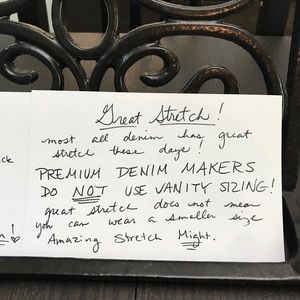 Great Stretch!
most all denim has great
stretch these days!
PREMIUM DENIM MAKERS
DO NOT USE VANITY SIZING!
great stretch does not mean
you can wear a smaller size
Amazing Stretch Might.
ck